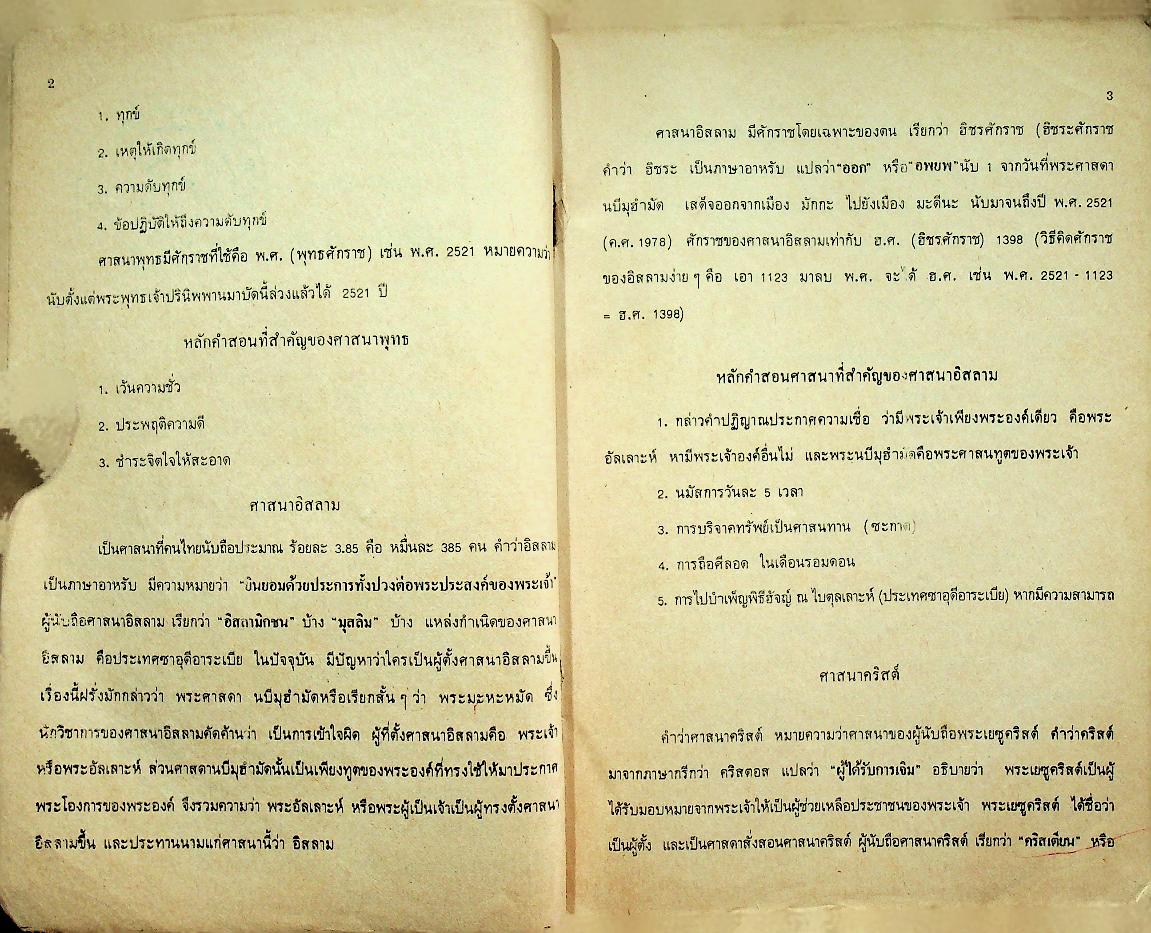 2
1. ทุกข์
2. เหตุให้เกิดทุกข์
3. ความดับทุกข์
4. ข้อปฏิบัติให้ถึงความดับทุกข์
ศาสนาพุทธมีศักราชที่ใช้คือ พ.ศ. (พุทธศักราช) เช่น พ.ศ. 2521 หมายความว่า
นับตั้งแต่พระพุทธเจ้าปรินิพพานมาบัดนี้ล่วงแล้วได้ 2521 ปี
หลักคำสอนที่สำคัญของศาสนาพุทธ
1. เว้นความชั่ว
2. ประพฤติความดี
3. ชำระจิตใจให้สะอาด
ศาสนาอิสลาม
เป็นศาสนาที่คนไทยนับถือประมาณ ร้อยละ 3.85 คือ หมื่นละ 385 คน คำว่าอิสลาม
เป็นภาษาอาหรับ มีความหมายว่า "ยินยอมด้วยประการทั้งปวงต่อพระประสงค์ของพระเจ้า"
ผู้นับถือศาสนาอิสลาม เรียกว่า "อิสลามิกชน" บ้าง "มุสลิม" บ้าง แหล่งกำเนิดของศาสนา
อิสลาม คือประเทศซาอุดีอาระเบีย ในปัจจุบัน มีปัญหาว่าใครเป็นผู้ตั้งศาสนาอิสลามขึ้น
เรื่องนี้ฝรั่งมักกล่าวว่า พระศาสดา นบีมุฮำมัดหรือเรียกสั้น ๆ ว่า พระมะหะหมัด ซึ่ง
นักวิชาการของศาสนาอิสลามคัดค้านว่า เป็นการเข้าใจผิด ผู้ที่ตั้งศาสนาอิสลามคือ พระเจ้า
หรือพระอัลเลาะห์ ส่วนศาสดานบีมุฮำมัดนั้นเป็นเพียงทูตของพระองค์ที่ทรงใช้ให้มาประกาศ
พระโองการของพระองค์ จึงรวมความว่า พระอัลเลาะห์ หรือพระผู้เป็นเจ้าเป็นผู้ทรงตั้งศาสนา
อิสลามขึ้น และประทานนามแก่ศาสนานี้ว่า อิสลาม
3
ศาสนาอิสลาม มีศักราชโดยเฉพาะของตน เรียกว่า ฮิชรศักราช (ฮิชระศักราช
คำว่า ฮิชระ เป็นภาษาอาหรับ แปลว่า "ออก" หรือ "อพยพ" นับ 1 จากวันที่พระศาสดา
นบีมุฮำมัด เสด็จออกจากเมือง มักกะ ไปยังเมือง มะดีนะ นับมาจนถึงปี พ.ศ. 2521
(ค.ศ. 1978) ศักราชของศาสนาอิสลามเท่ากับ ฮ.ศ. (ฮิชรศักราช) 1398 (วิธีคิดศักราช
ของอิสลามง่าย ๆ คือ เอา 1123 มาลบ พ.ศ. จะได้ ฮ.ศ. เช่น พ.ศ. 2521 - 1123
= ฮ.ศ. 1398)
หลักคำสอนศาสนาที่สำคัญของศาสนาอิสลาม
1. กล่าวคำปฏิญาณประกาศความเชื่อ ว่ามีพระเจ้าเพียงพระองค์เดียว คือพระ
อัลเลาะห์ หามีพระเจ้าองค์อื่นไม่ และพระนบีมุฮำมัดคือพระศาสนทูตของพระเจ้า
2. นมัสการวันละ 5 เวลา
3. การบริจาคทรัพย์เป็นศาสนทาน (ซะกาต)
4. การถือศีลอด ในเดือนรอมดอน
5. การไปบำเพ็ญพิธีฮัจญ์ ณ ไบตุลเลาะห์ (ประเทศซาอุดีอาระเบีย) หากมีความสามารถ
ศาสนาคริสต์
คำว่าศาสนาคริสต์ หมายความว่าศาสนาของผู้นับถือพระเยซูคริสต์ คำว่าคริสต์
มาจากภาษากรีกว่า คริสตอส แปลว่า "ผู้ได้รับการเจิม" อธิบายว่า พระเยซูคริสต์เป็นผู้
ได้รับมอบหมายจากพระเจ้าให้เป็นผู้ช่วยเหลือประชาชนของพระเจ้า พระเยซูคริสต์ ได้ชื่อว่า
เป็นผู้ตั้ง และเป็นศาสดาสั่งสอนศาสนาคริสต์ ผู้นับถือศาสนาคริสต์ เรียกว่า "คริสเตียน" หรือ